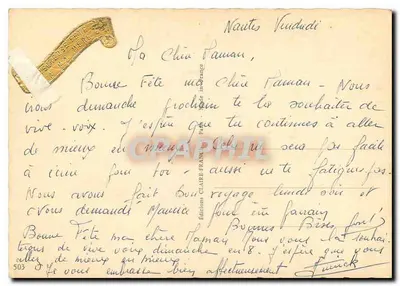 Nantes Vendredi.
Ma Chère Maman,
Bonne Fête ma Chère Maman - Nous
irons dimanche prochain te la souhaiter de
vive-voix. J'espère que tu continues à aller
de mieux en mieux. Cela ne sera pas facile
à écrire pour toi - aussi ne te fatigue pas.
Nous avons fait bon voyage lundi soir et
Maurice
Bonnes Bises
Bonne Fête ma chère Maman Nous vous la souhai-
terons de vive voix dimanche en 8. J'espère que vous
allez de mieux en mieux.
Je vous embrasse bien affectueusement
503
Editions CLAIRE-FRANCE
CARTE-POSTALE